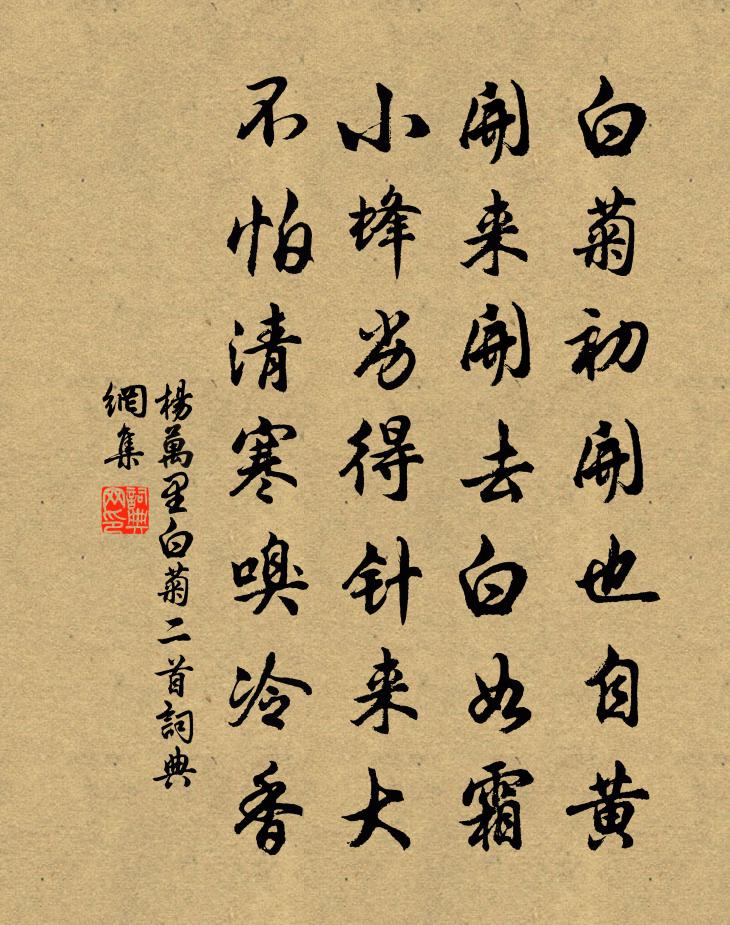 白菊初開也自黄
開来開去白如霜
小蜂劣得針来大
不怕清寒嗅冷香
楊萬里白菊二首詞典
網集
詞典
网印